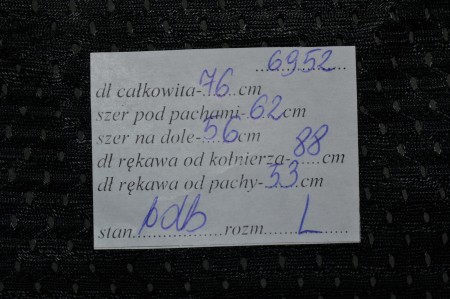 6952
dł całkowita-76 cm
szer pod pachami-62cm
szer na dole-56cm
dł rękawa od kołnierza-88cm
dł rękawa od pachy-53cm
stan bdb rozm L